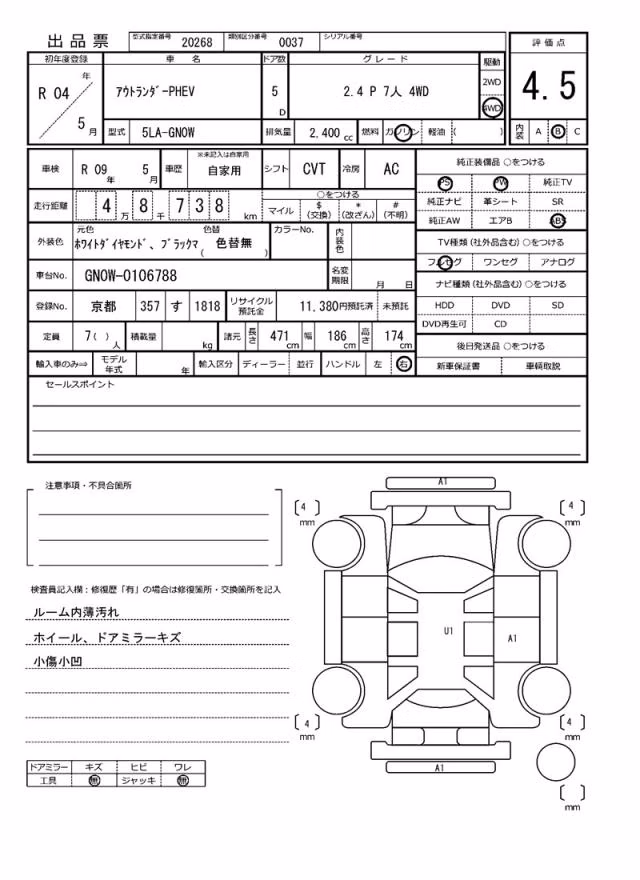 出品票 型式指定番号 20268 類別区分番号 0037 シリアル番号
評価点
4.5
内装 A B C
初年度登録 車名 ドア数 グレード 駆動
R 04 年 5 月
アウトランダ-PHEV 5 D 2.4 P 7人 4WD 2WD 4WD
型式 5LA-GN0W 排気量 2,400 cc 燃料 ガソリン 軽油 ( )
車検 R 09 年 5 月 車歴 ※未記入は自家用 自家用 シフト CVT 冷房 AC
走行距離 4 万 8 千 7 3 8 km
○をつける
マイル $ (交換) * (改ざん) # (不明)
外装色 元色 色替
ホワイトダイヤモンド、ブラックマ ( 色替無 )
カラーNo. 内装色
車台No. GN0W-0106788 名変期限 月 日
登録No. 京都 357 す 1818 リサイクル預託金 11,380円預託済 未預託
定員 7( ) 人 積載量 kg 諸元 長さ 471 cm 幅 186 cm 高さ 174 cm
輸入車のみ⇒ モデル年式 年 輸入区分 ディーラー 並行 ハンドル 左 右
純正装備品 ○をつける
PS PW 純正TV
純正ナビ 革シート SR
純正AW エアB ABS
TV種類 (社外品含む) ○をつける
フルセグ ワンセグ アナログ
ナビ種類 (社外品含む) ○をつける
HDD DVD SD
DVD再生可 CD
後日発送品 ○をつける
新車保証書 車輌取説
セールスポイント
注意事項・不具合箇所
検査員記入欄:修復歴「有」の場合は修復箇所・交換箇所を記入
ルーム内薄汚れ
ホイール、ドアミラーキズ
小傷小凹
ドアミラー キズ ヒビ ワレ
工具 無 ジャッキ 無
A1
[ 4 ] mm
[ 4 ] mm
U1
A1
[ 4 ] mm
[ 4 ] mm
A1
[ ] mm